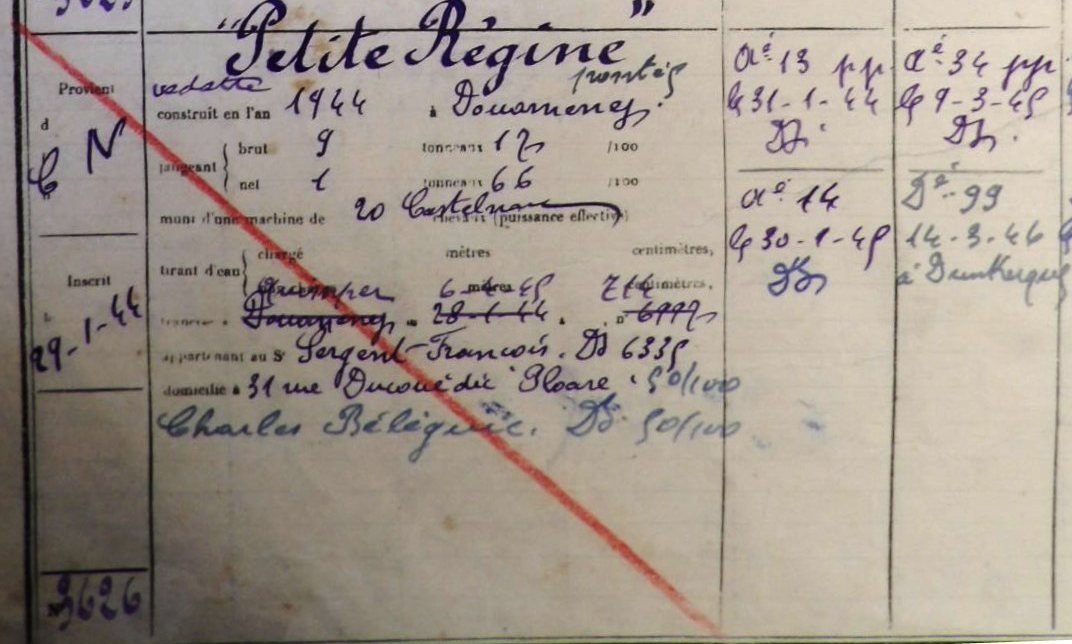 "Petite Régine"
Provient
d
C N
Inscrit
le
29-1-44
N° 3626
vedette pontée
construit en l'an 1944 à Douarnenez
jaugeant { brut 9 tonneaux 17 /100
net 1 tonneaux 66 /100
muni d'une machine de 20 Castelnau chevaux (puissance effective)
tirant d'eau { chargé mètres centimètres,
mètres centimètres,
Quimper 6-4-45 714
francisé à Douarnenez le 28-1-44, n° 6997
appartenant au Sr Sergent François. Dz 6335
domicilié à 31 rue Ducouëdic Ploaré. 50/100
Charles Béléguic. Dz 50/100
Aé 13 pp
le 31-1-44
Dz.
Aé 14
le 30-1-45
Dz
Aé 34 pp.
le 9-3-45
Dz.
Dé 99
14-3-46
à Dunkerque